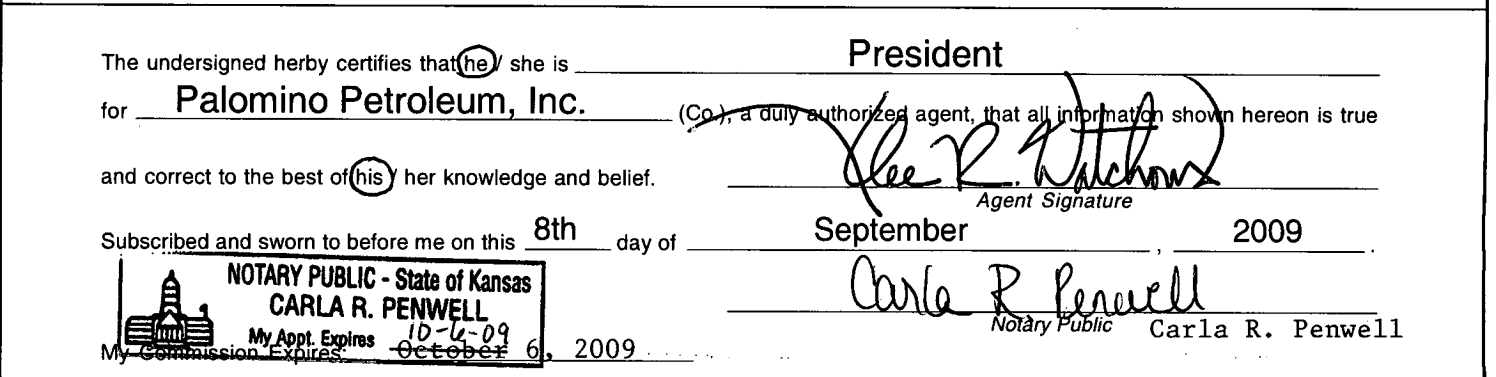 The undersigned herby certifies that he / she is President
for Palomino Petroleum, Inc. (Co.), a duly authorized agent, that all information shown hereon is true
and correct to the best of his / her knowledge and belief. Klee R. Watchous
Agent Signature
Subscribed and sworn to before me on this 8th day of September , 2009 .
NOTARY PUBLIC - State of Kansas
CARLA R. PENWELL
My Appt. Expires 10-6-09
Carla R Penwell
Notary Public Carla R. Penwell
My Commission Expires: October 6, 2009